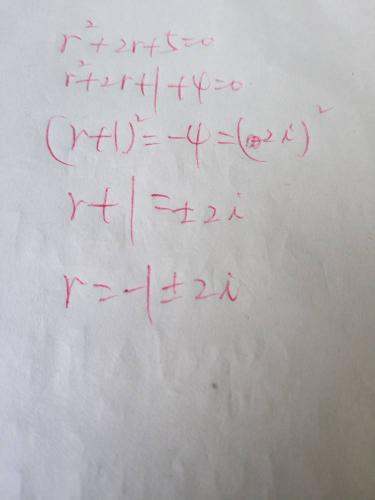 r²+2r+5=0
r²+2r+1+4=0
(r+1)²=-4=(2i)²
r+1=±2i
r=-1±2i